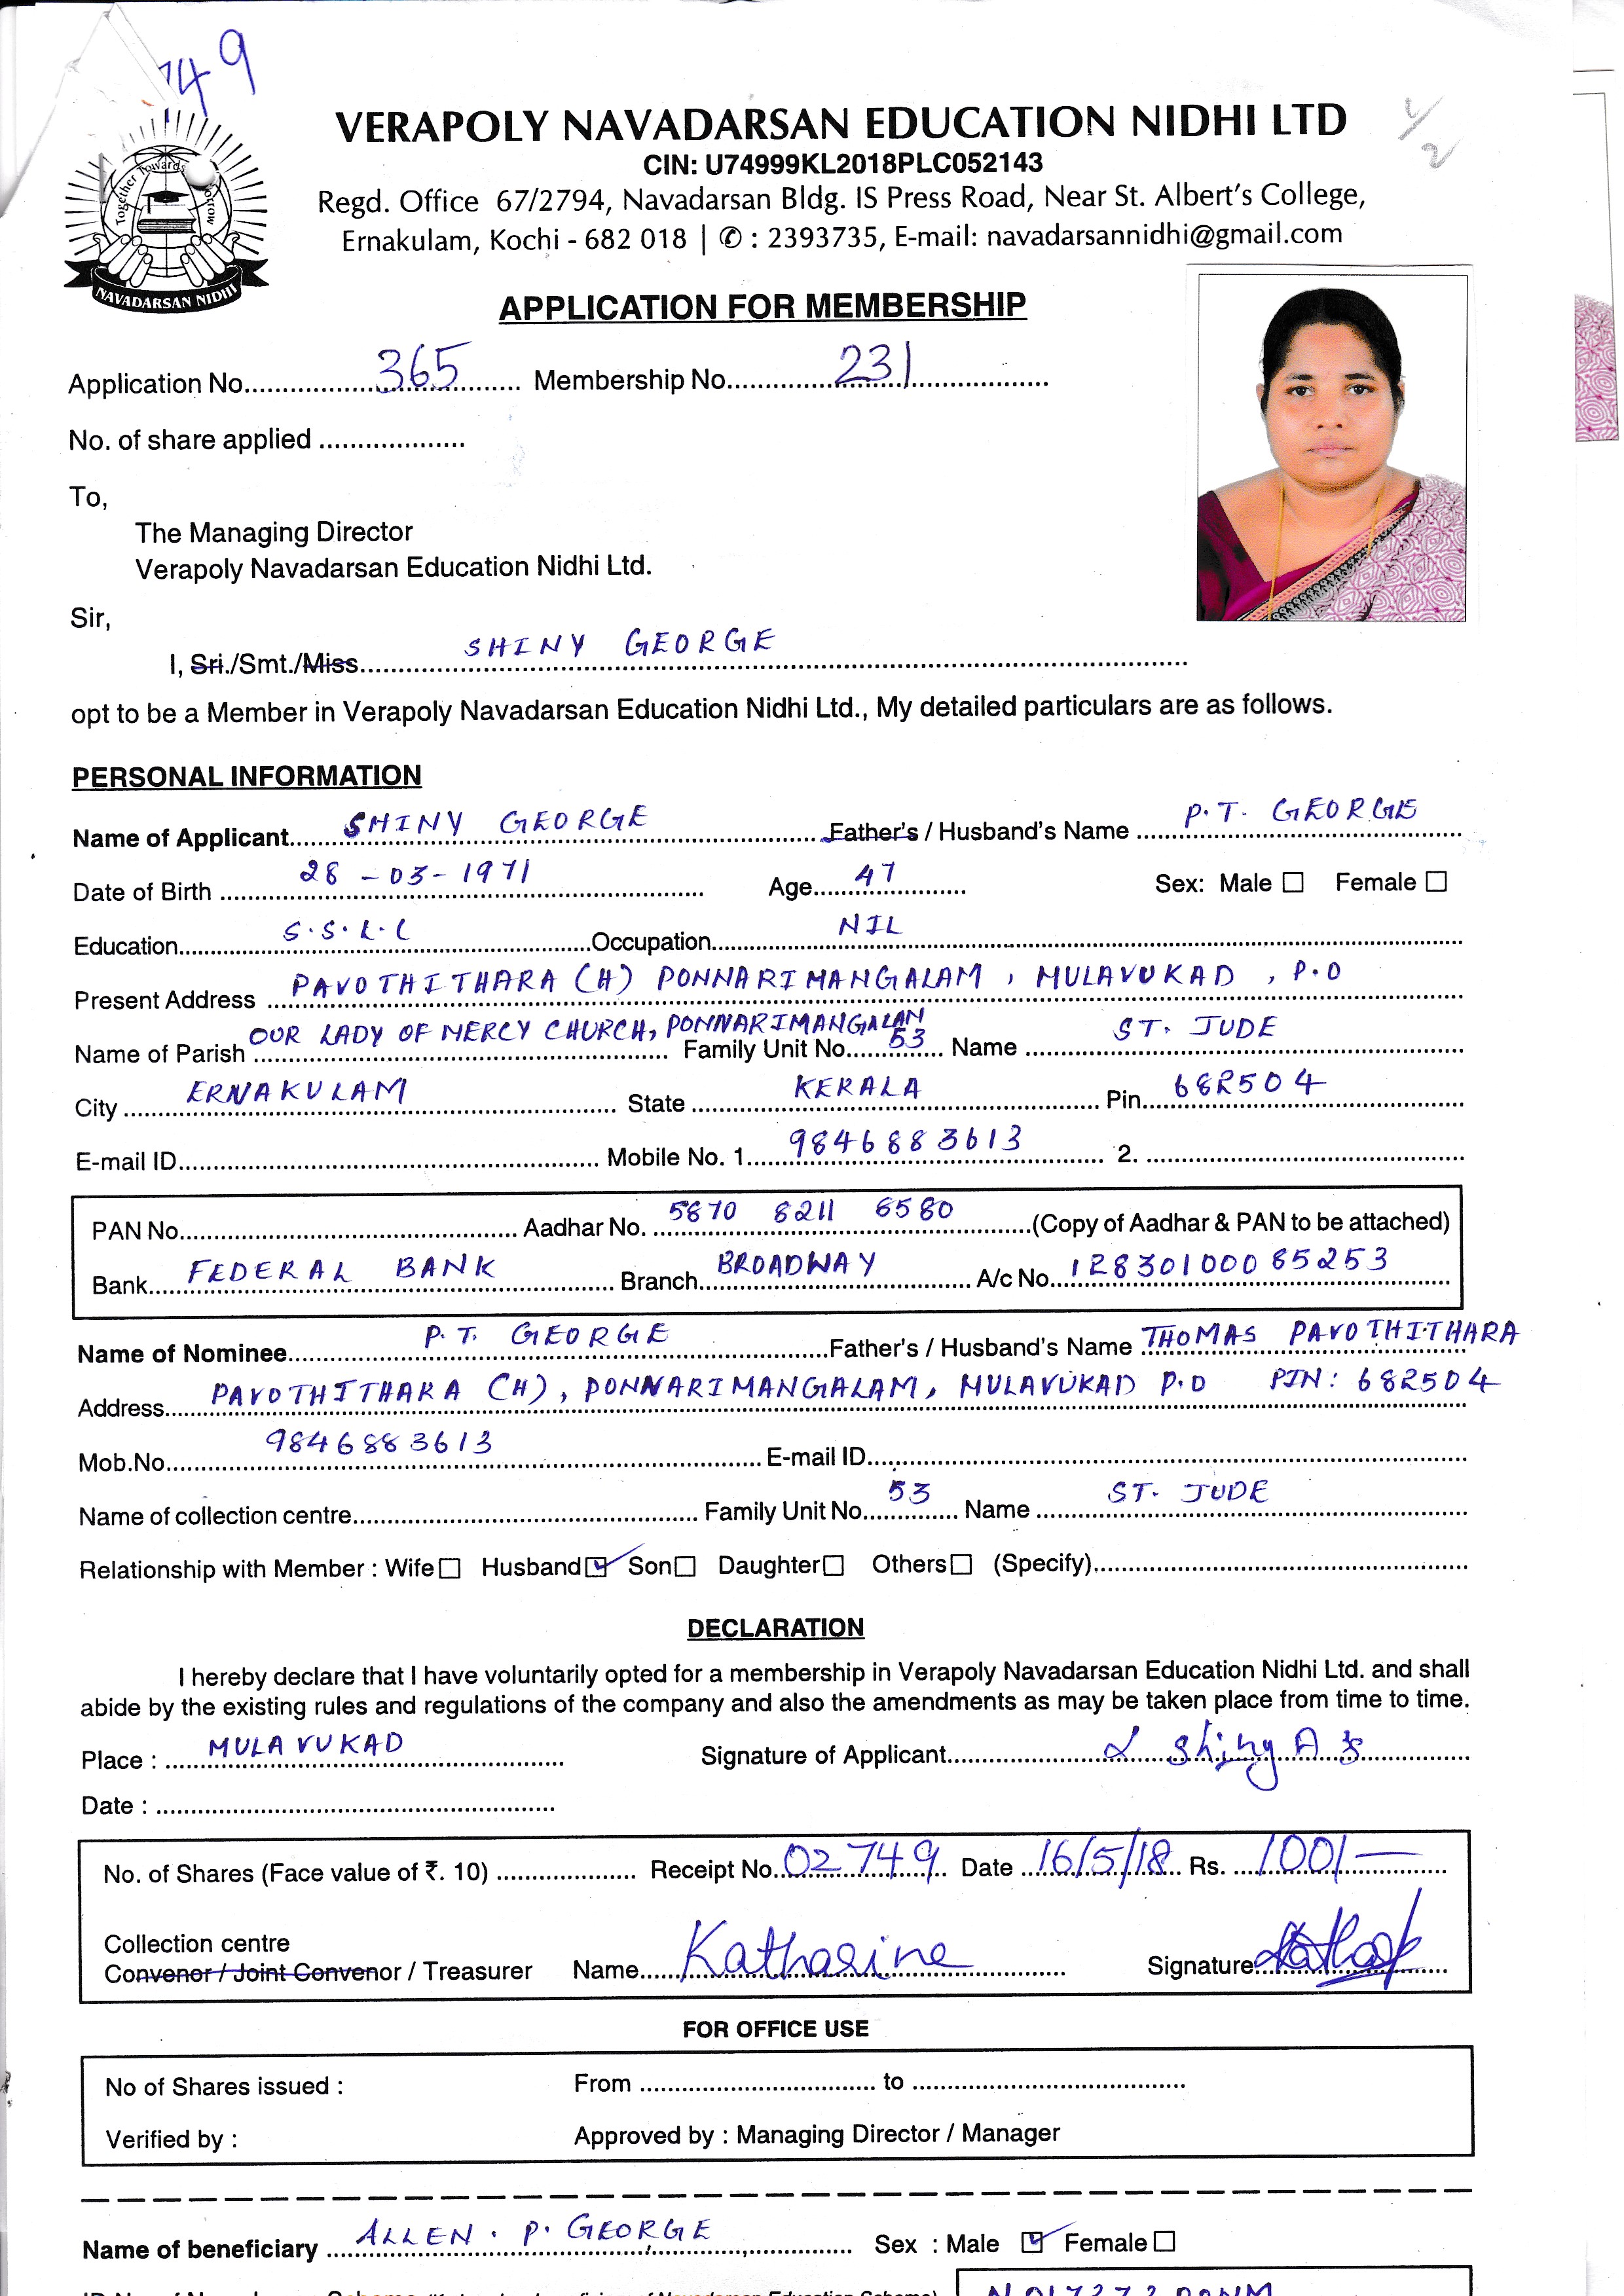 749
VERAPOLY NAVADARSAN EDUCATION NIDHI LTD
CIN: U74999KL2018PLC052143
Regd. Office 67/2794, Navadarsan Bldg. IS Press Road, Near St. Albert's College,
Ernakulam, Kochi - 682 018 | ✆ : 2393735, E-mail: navadarsannidhi@gmail.com
Together Towards
NAVADARSAN NIDHI
1/2
APPLICATION FOR MEMBERSHIP
Application No. 365 Membership No. 231
No. of share applied
To,
The Managing Director
Verapoly Navadarsan Education Nidhi Ltd.
Sir,
I, Sri./Smt./Miss. SHINY GEORGE
opt to be a Member in Verapoly Navadarsan Education Nidhi Ltd., My detailed particulars are as follows.
PERSONAL INFORMATION
Name of Applicant SHINY GEORGE Father's / Husband's Name P.T. GEORGE
Date of Birth 28-03-1971 Age 47 Sex: Male ☐ Female ☐
Education S.S.L.C Occupation NIL
Present Address PAVOTHITHARA (H) PONNARIMANGALAM, MULAVUKAD, P.O
Name of Parish OUR LADY OF MERCY CHURCH, PONNARIMANGALAM Family Unit No. 53 Name ST. JUDE
City ERNAKULAM State KERALA Pin 682504
E-mail ID Mobile No. 1 9846883613 2.
PAN No. Aadhar No. 5870 8211 6580 (Copy of Aadhar & PAN to be attached)
Bank FEDERAL BANK Branch BROADWAY A/c No. 12830100065253
Name of Nominee P.T. GEORGE Father's / Husband's Name THOMAS PAVOTHITHARA
Address PAVOTHITHARA (H), PONNARIMANGALAM, MULAVUKAD P.O PIN: 682504
Mob.No. 9846883613 E-mail ID
Name of collection centre Family Unit No. 53 Name ST. JUDE
Relationship with Member : Wife ☐ Husband ☑ Son ☐ Daughter ☐ Others ☐ (Specify)
DECLARATION
I hereby declare that I have voluntarily opted for a membership in Verapoly Navadarsan Education Nidhi Ltd. and shall
abide by the existing rules and regulations of the company and also the amendments as may be taken place from time to time.
Place : MULAVUKAD Signature of Applicant Shiny A
Date :
No. of Shares (Face value of ₹. 10) Receipt No. 02749 Date 16/5/18 Rs. 100/-
Collection centre
Convenor / Joint Convenor / Treasurer Name Katharine Signature
FOR OFFICE USE
No of Shares issued : From to
Verified by : Approved by : Managing Director / Manager
Name of beneficiary ALLEN. P. GEORGE Sex : Male ☑ Female ☐